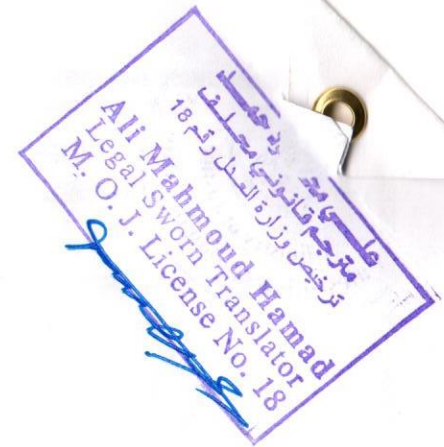 علي
مترجم قانوني محلف
ترخيص وزارة العدل رقم 18
Ali Mahmoud Hamad
Legal Sworn Translator
M. O. J. License No. 18